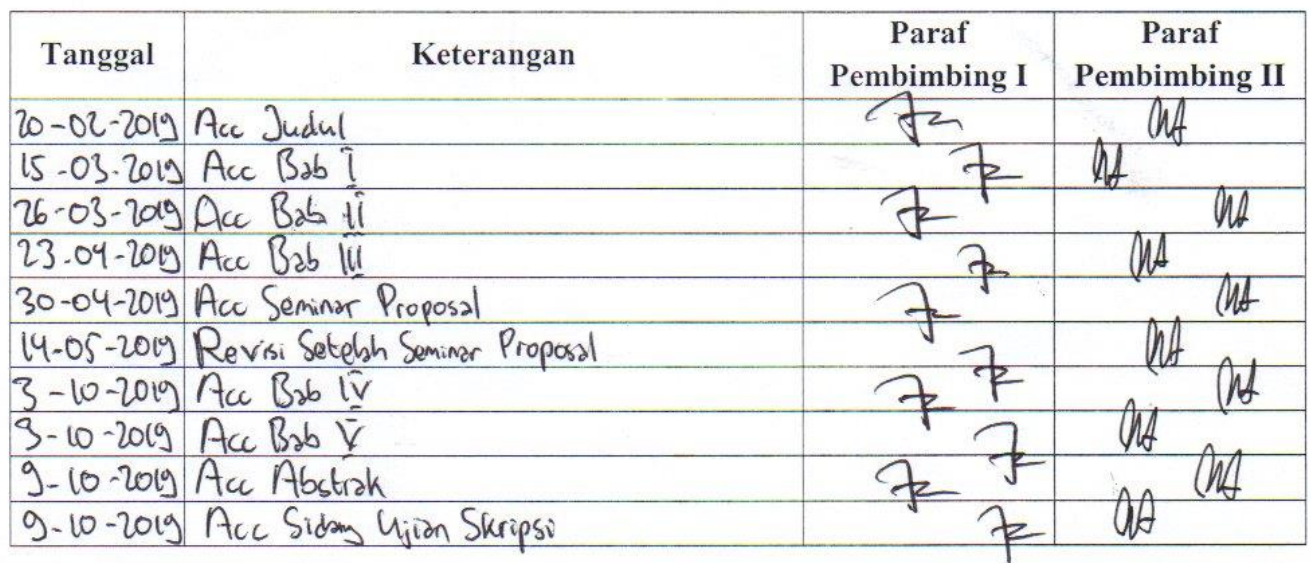 Tanggal Keterangan Paraf Pembimbing I Paraf Pembimbing II
20-02-2019 Acc Judul
15-03-2019 Acc Bab I
26-03-2019 Acc Bab II
23-04-2019 Acc Bab III
30-04-2019 Acc Seminar Proposal
14-05-2019 Revisi Setelah Seminar Proposal
3-10-2019 Acc Bab IV
3-10-2019 Acc Bab V
9-10-2019 Acc Abstrak
9-10-2019 Acc Sidang Ujian Skripsi